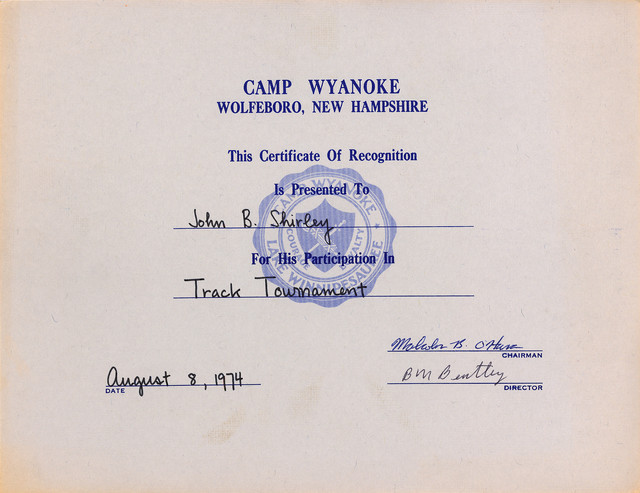 CAMP WYANOKE
WOLFEBORO, NEW HAMPSHIRE
This Certificate Of Recognition
Is Presented To
John B. Shirley
For His Participation In
Track Tournament
CAMP WYANOKE
COURAGE LOYALTY
LAKE WINNIPESAUKEE
Malcolm B. O'Hara
CHAIRMAN
August 8, 1974
DATE
B M Bentley
DIRECTOR